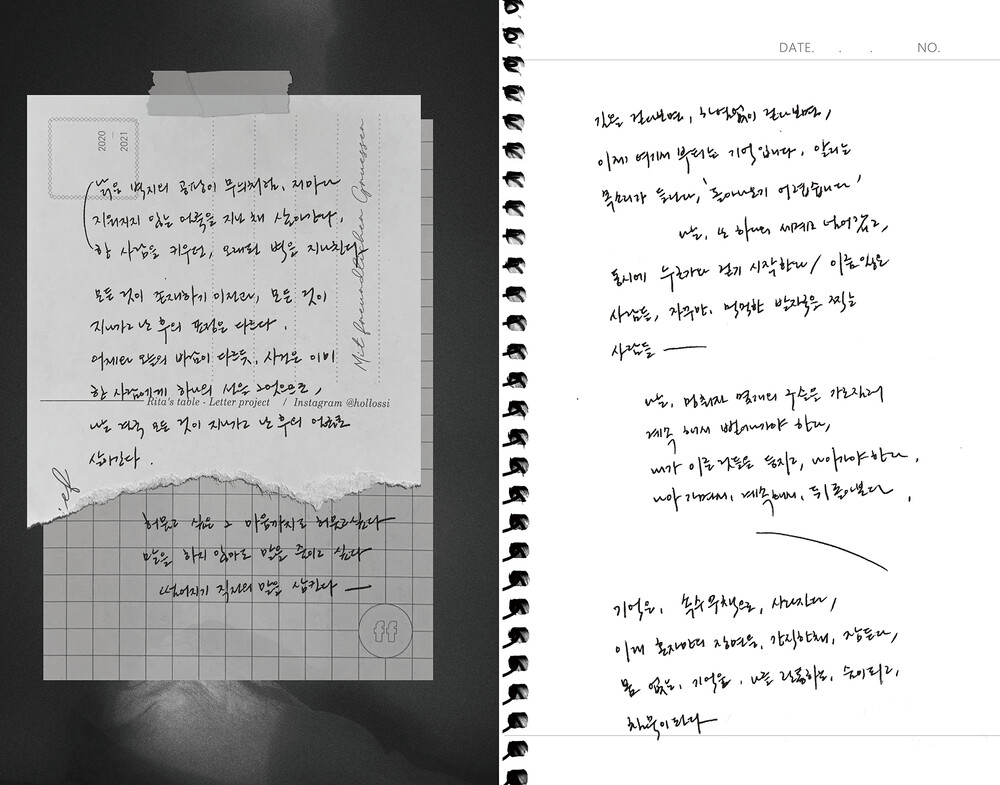 2020
2021
Mit freundlichen Gruessen
낡은 벽지의 공장이 무늬처럼, 저마다
지워지지 않는 얼룩을 지닌 채 살아간다,
한 사람을 키우던, 오래된 벽을 지나친다
모든 것이 존재하기 이전과, 모든 것이
지나가고 난 후의 표정은 다르다.
어제와 오늘의 바람이 다르듯, 사건은 이미
한 사람에게 하나의 선을 그었으므로,
나는 결국 모든 것이 지나가고 난 후의 얼굴로
살아간다.
Rita's table - Letter project / Instagram @hollossi
허물고 싶은 그 마음까지도 허물고싶다
말을 하지 않아도 말을 줄이고 싶다
떨어지기 직전의 말을 삼킨다 —
ff
DATE. . . NO.
길을 걷다보면, 하염없이 걷다보면,
이제 여기서 부터는 기억입니다, 알리는
목소리가 들리나, 돌아나오기 어렵습니다,
나는, 또 하나의 세계로 넘어갔고,
동시에 누군가는 걷기 시작한다/ 이름 잃은
사람들, 자꾸만, 먹먹한 발자국을 찍는
사람들 —
나는, 멈춰진 몇개의 구슬은 가로질러
계속 해서 벌어나가야 한다,
내가 이룬 것들을 등지고, 나아가야한다,
나아 가면서, 계속해서, 뒤 돌아본다,
기억은, 속수무책으로, 사라진다/
이내 혼자만의 장면을, 간직한채, 잠든다,
몸 없는, 기억을, 나는 되풀이하는, 숨이되고,
침묵이 된다